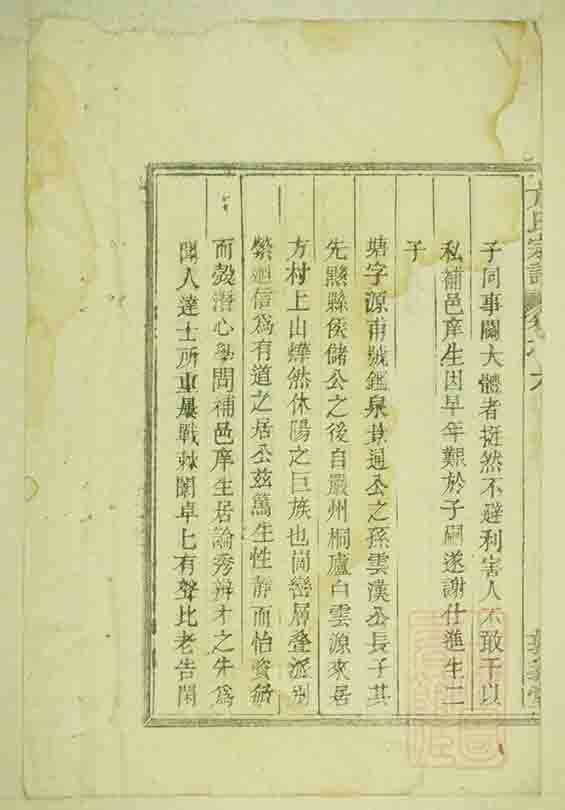 子同事關大體者挺然不避利害人不敢干以
私補邑庠生因早年艱於子嗣遂謝仕進生二
子
塘字源甫號鑑泉景通公之孫雲漢公長子其
先黟縣侯儲公之後自嚴州桐廬白雲源來居
方村上山燁然休陽之巨族也崗巒層叠派別
縈迴信為有道之居公茲篤生性靜而怡資
而潛心學問補邑庠生居論秀辨才之先為
聞人達士所重屢戰棘闈卓七有聲比老告閑